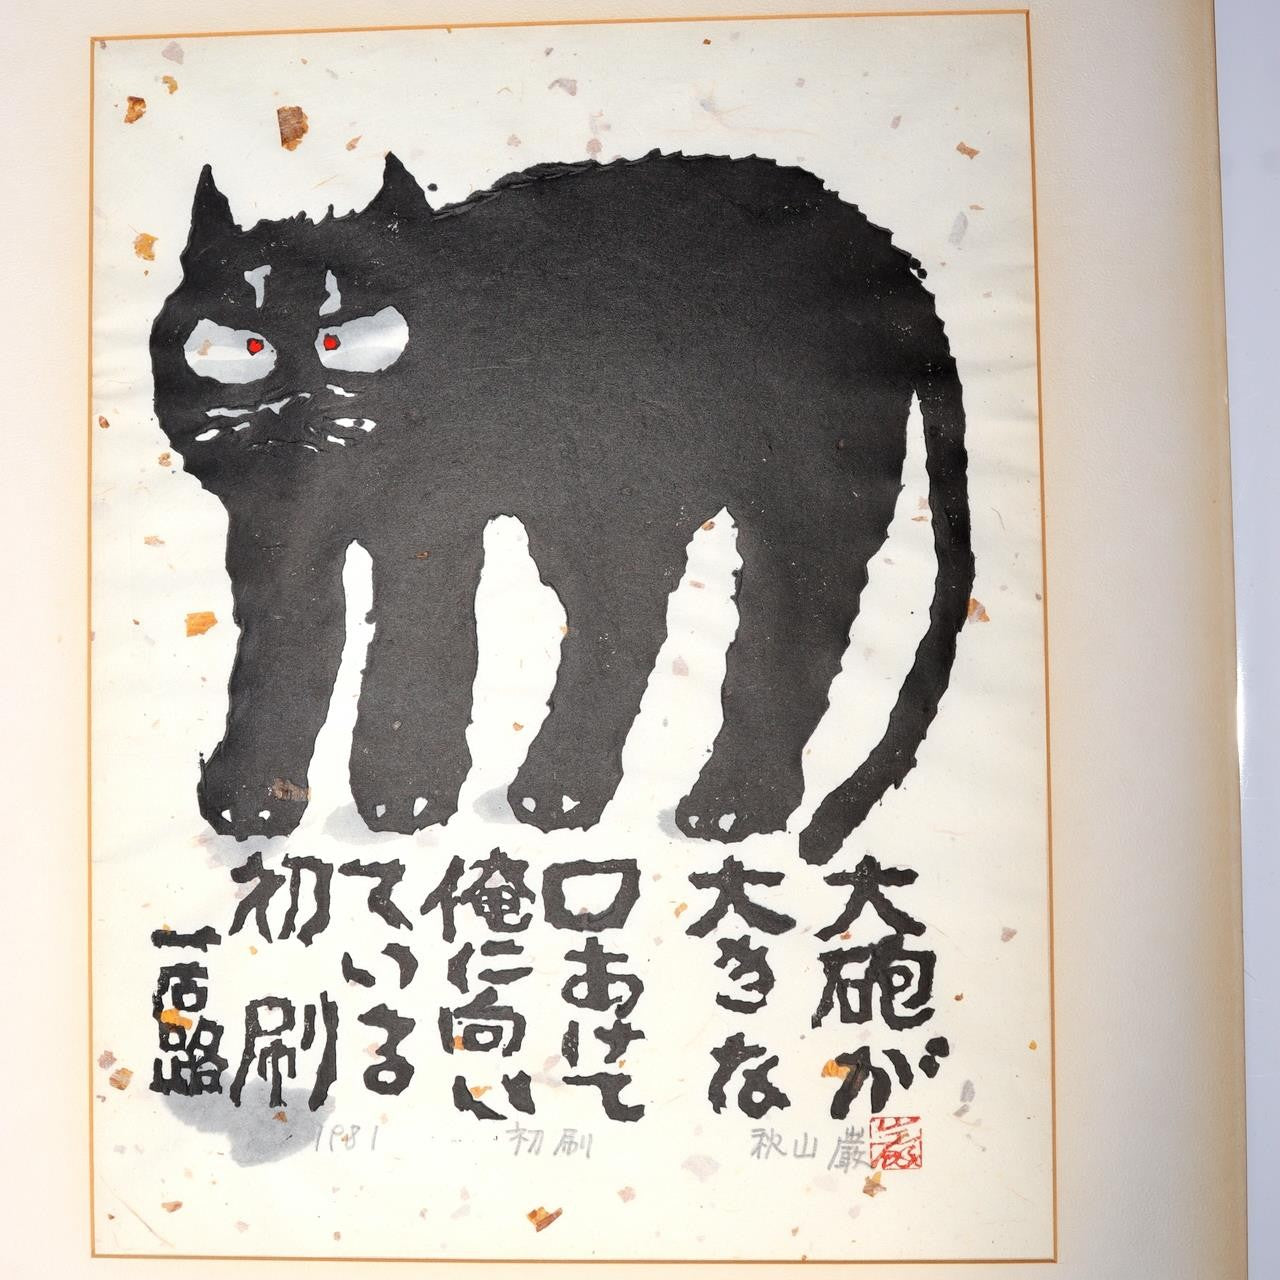 大砲が
大きな
口あけて
俺に向い
ている
初刷
一石路
1981 初刷 秋山巌